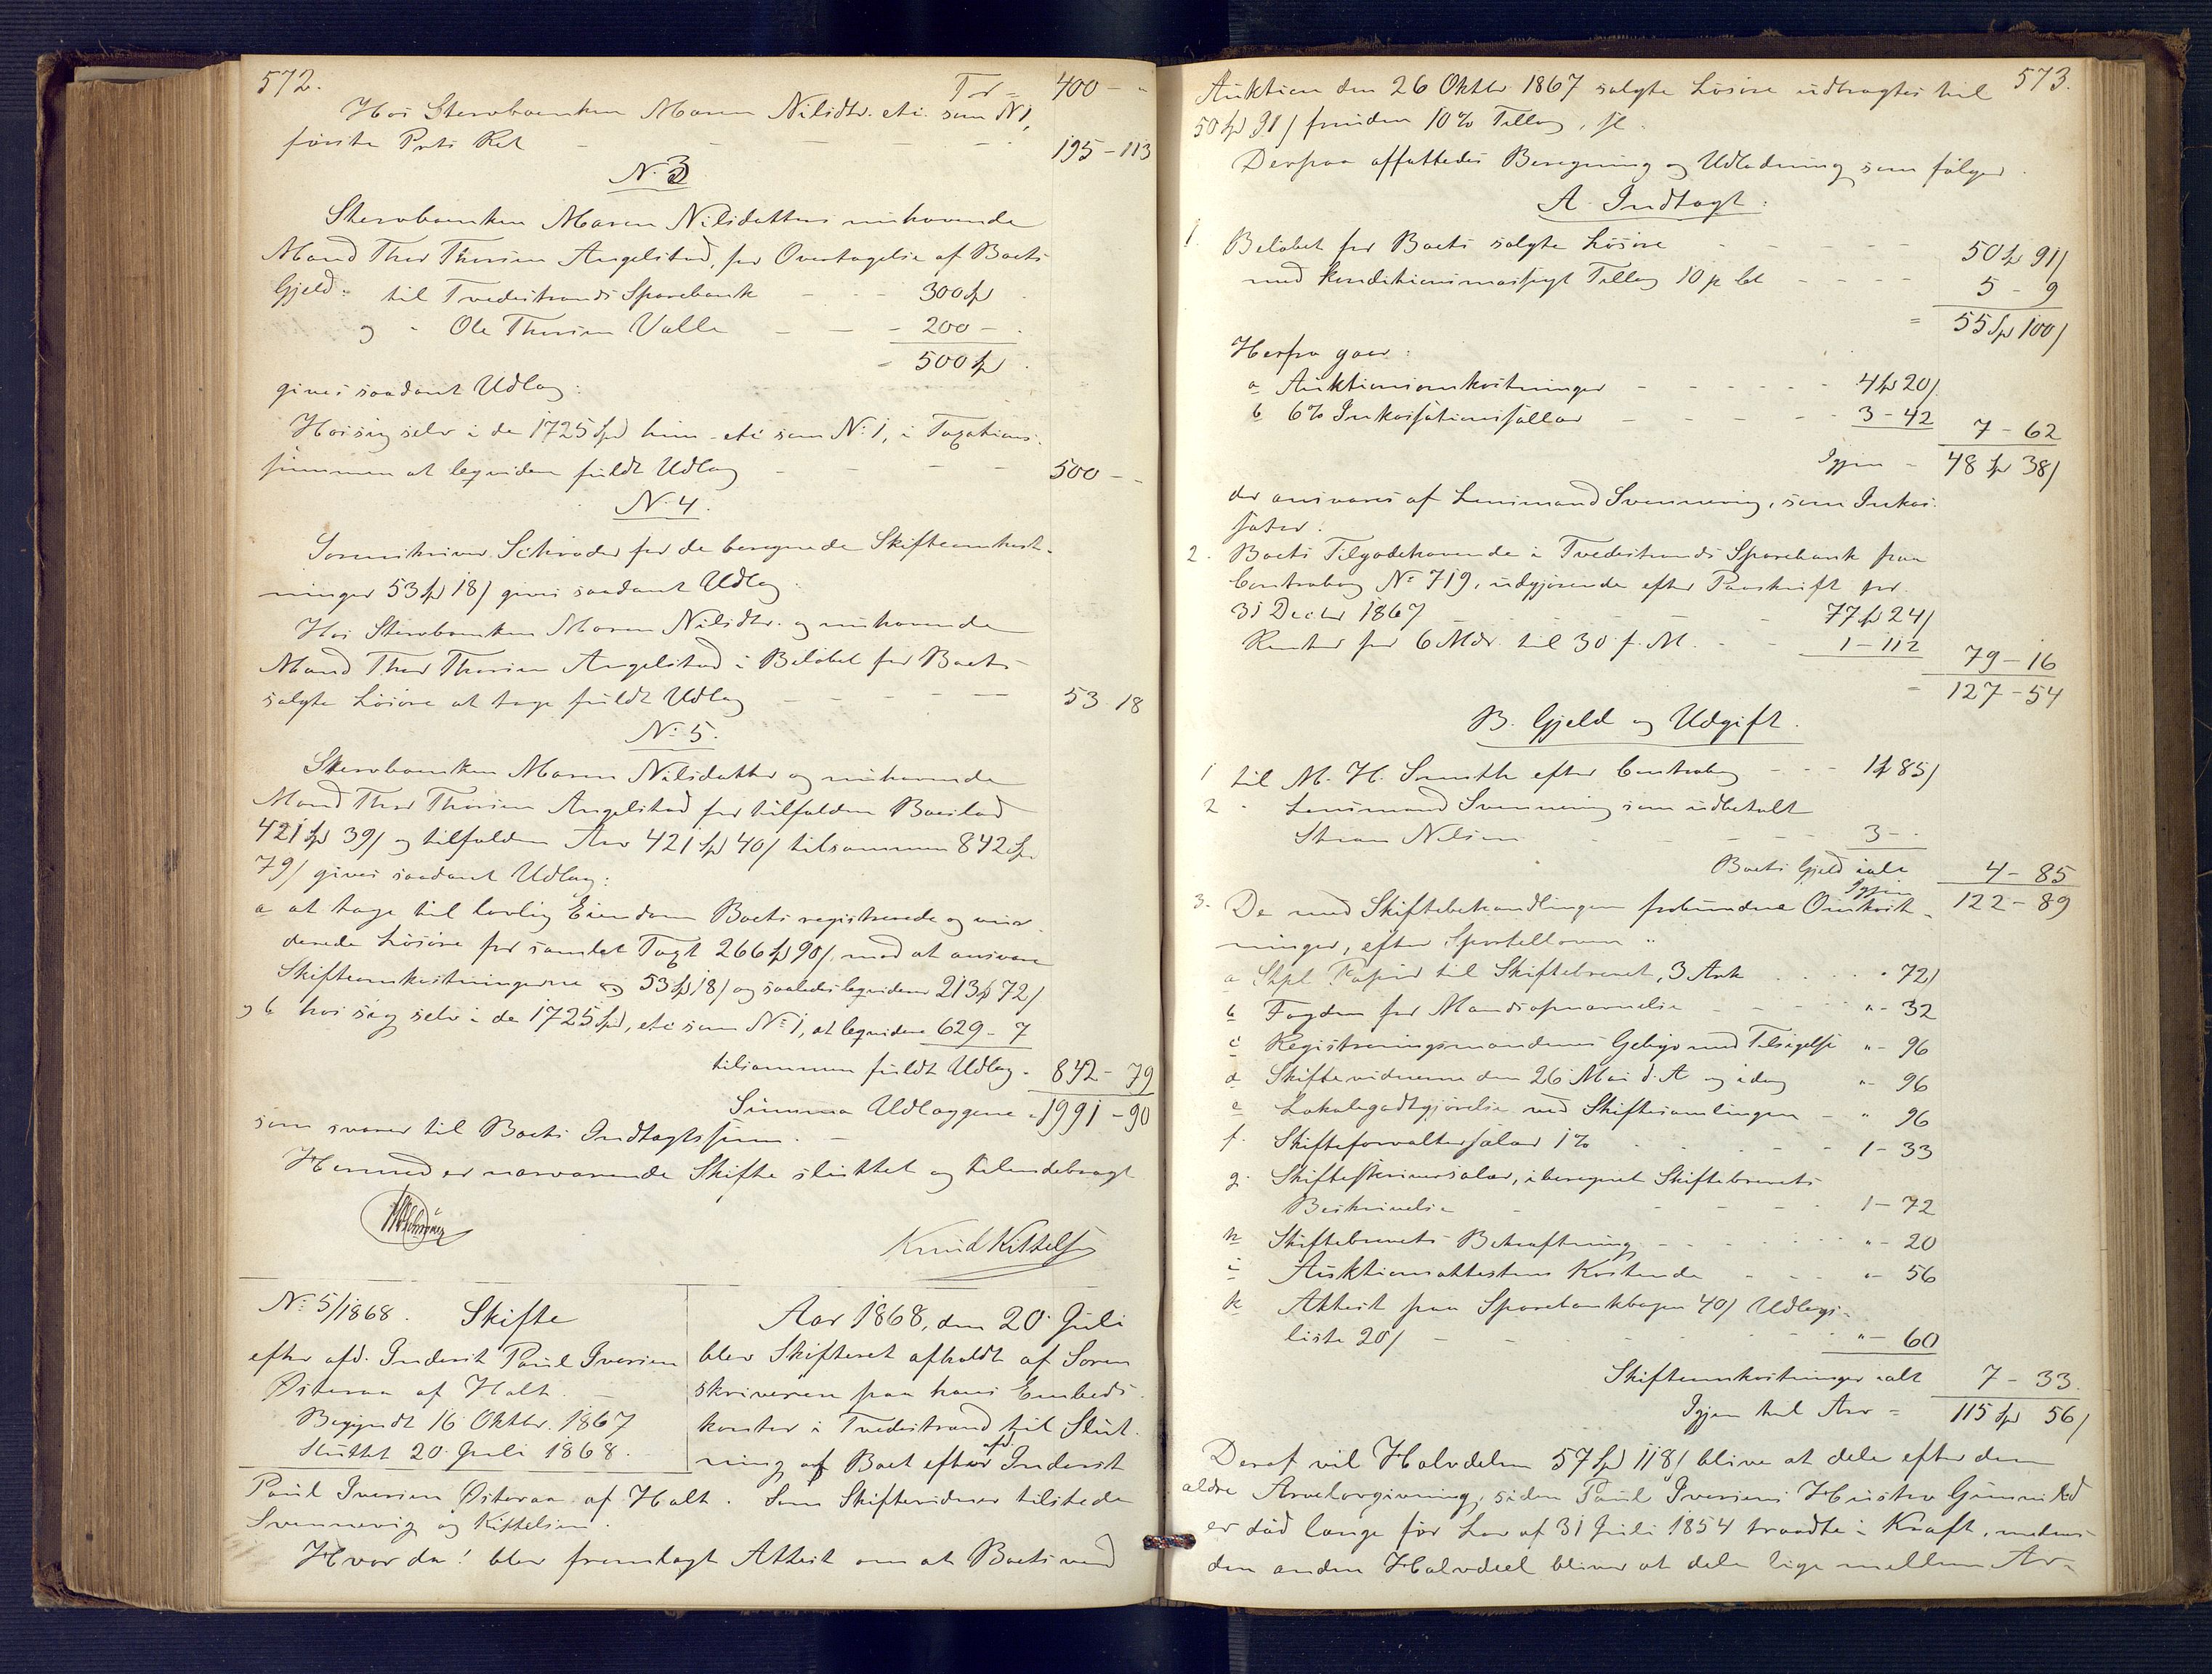 572.
Tr = 400 - "
Hos Stervboenken Maren Nilsdtr. etc. som N 1,
første Prts Ret - - - - - 195 - 113
N. 3
Stervboenken Maren Nilsdatters nuhavende
Mand Thor Thorsen Angelstad, for Overtagelse af Boets
Gjeld: til Tvedestrands Sparebank - - - 300 Spd
og - Ole Thorsen Valle - - - 200 -
= 500 Spd.
gives saadant Udlæg:
Hos sig selv i de 1725 Spd hiin etc som N: 1, i Taxations-
summen at leqvidere fuldt Udlæg - - - - 500 - -
N. 4.
Sorenskriver Schrøder for de beregnede Skifteomkost-
ninger 53 Spd 18/ gives saadant Udlæg:
Hos Stervboenken Maren Nilsdtr. og nuhavende
Mand Thor Thorsen Angelstad i Beløbet for Boets
solgte Løsøre at tage fuldt Udlæg - - - - 53 18
N: 5.
Stervboenken Maren Nilsdatter og nuhavende
Mand Thor Thorsen Angelstad for tilfalden Boeslod
421 Spd 39/ og tilfalden Arv 421 Spd 40/ tilsammen 842 Spd
79/ gives saadant Udlæg:
a at tage til lovlig Eiendom Boets registrerede og vur-
derede Løsøre for samlet Taxt 266 Spd 90/, mod at ansvare
Skifteomkostningerne 53 Spd 18/ og saaledes leqviderer 213 Spd 72/
og b hos sig selv i de 1725 Spd, etc som N: 1, at leqvidere 629 - 7
tilsammen fuldt Udlæg = 842 - 79
Summa Udlæggene = 1991 - 90
som svarer til Boets Indtægtssum. -
Hermed er nærværende Skifte sluttet og tilendebragt
Knud Kittelsen
N: 5/1868. Skifte
efter afd. Inderst Poul Iversen
Østeraa af Holt. -
Begyndt 16 Oktbr. 1867
Sluttet 20 Juli 1868.
Aar 1868, den 20 Juli
blev Skifteret afholdt af Soren-
skriveren paa hans Embeds-
kontor i Tvedestrand til Slut-
ning af Boet efter afd. Inderst
Poul Iversen Østeraa af Holt. Som Skiftevidner tilstede
Svennevig og Kittelsen.
Hvorda! blev fremlagt Attest om at Boets ved
573.
Auktion den 26 Oktbr. 1867 solgte Løsøre udbragtes til
50 Spd 91/ foruden 10% Tillæg,
Derpaa affattedes Beregning og Udlodning som følger.
A. Indtægt:
1. Beløbet for Boets solgte Løsøre - - - - 50 Spd 91/
med konditionsmæssigt Tillæg 10 p Ct - - - - 5 - 9
= 55 Spd 100/
Herfra gaar:
a Auktionsomkostninger - - - - - 4 Spd 20/
b 6% Inkassationssallær - - - - 3 - 42 7 - 62
Igjen = 48 Spd 38/
der ansvares af Lensmand Svennevig, som Inkas-
sator.
2. Boets Tilgodehavende i Tvedestrands Sparebank paa
Contrabog N: 719, udgjørende efter Paaskrift pr.
31 Decbr 1867 - - - - 77 Spd 24/
Renter for 6 Mdr. til 30 f. M. - - 1 - 112 79 - 16
= 127 - 54
B. Gjeld og Udgift.
1 til M. H. Smith efter Contrabog - - - 1 Spd 85/
2 - Lensmand Svennevig som udbetalt
Nilsen - - - - 3 - -
Boets Gjeld ialt 4 - 85
Igjen 122 - 89
3. De med Skiftebehandlingen forbundne Omkost-
ninger, efter Sportelloven "
a Stpl. Papir til Skiftebrevet, 3 Ark - - - - 72/
b Fogden for Mandsopnævnelse - - - - " - 32
c Registreringsmændenes Gebyr med Tilsigelse " - 96
d Skiftevidnerne den 26 Mai d. A. og idag " - 96
e Lokalegodtgjørelse ved Skiftesamlingen - " 96
f. Skifteforvaltersalær 1% - - - - 1 - 33
g. Skifteskriversalær, iberegnet Skiftebrevets
Beskrivelse - - - - 1 - 72
h Skiftebrevets Bekræftning - - - - " - 20
i Auktionsattestens Kostende - - - " - 56
k Attest paa Sparebankbogen 40/ Udlægs-
liste 20/ - - - - " - 60
Skifteomkostninger ialt 7 - 33.
Igjen til Arv = 115 Spd 56/
Deraf vil Halvdelen 57 Spd 118/ blive at dele efter den
ældre Arvelovgivning, siden Poul Iversens Hustru Gunnild
er død længe før Lov af 31 Juli 1854 traadte i Kraft, medens
den anden Halvdeel bliver at dele lige mellem Ar-